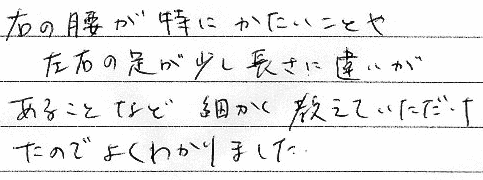 右の腰が特にかたいことや
左右の足が少し長さに違いが
あることなど 細かく 教えていただけ
たのでよくわかりました.